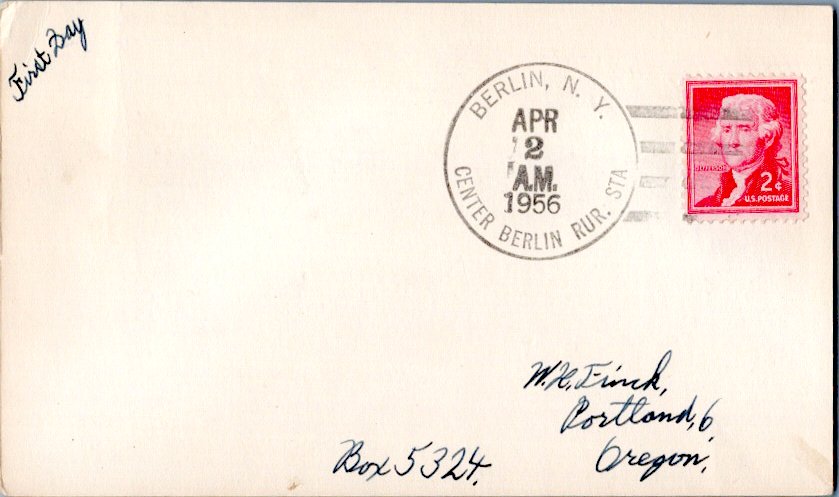 First Day
BERLIN, N. Y.
APR
2
A.M.
1956
CENTER BERLIN RUR. STA
JEFFERSON
2¢
U.S. POSTAGE
W.H. Finck,
Portland, 6
Oregon.
Box 5324.